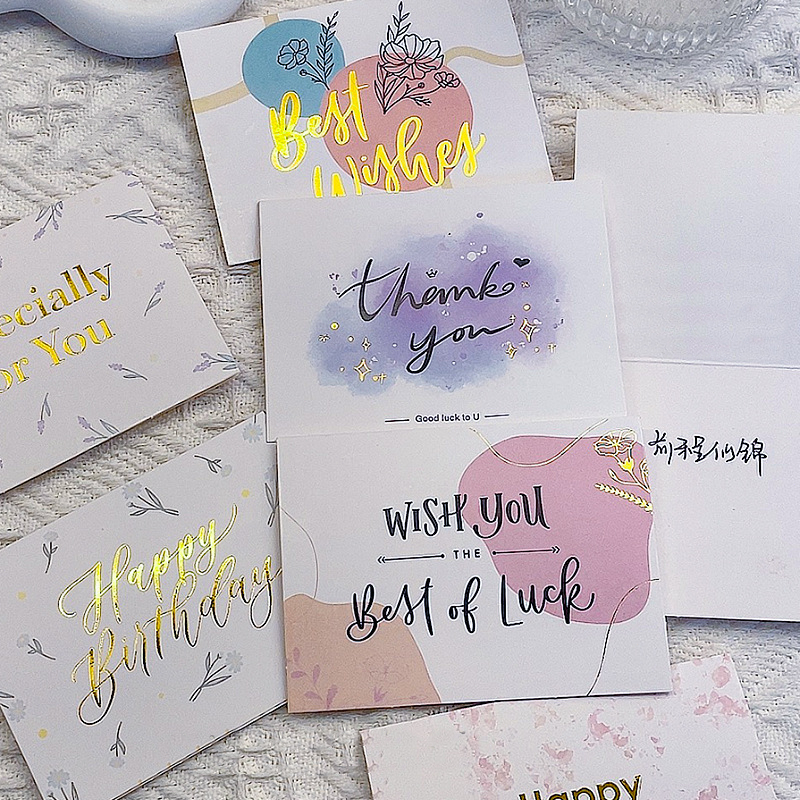 Best
Wishes
thank
you
Good luck to U
ecially
or You
前程似锦
WISH YOU
THE
Best of Luck
Happy
Birthday
Happy